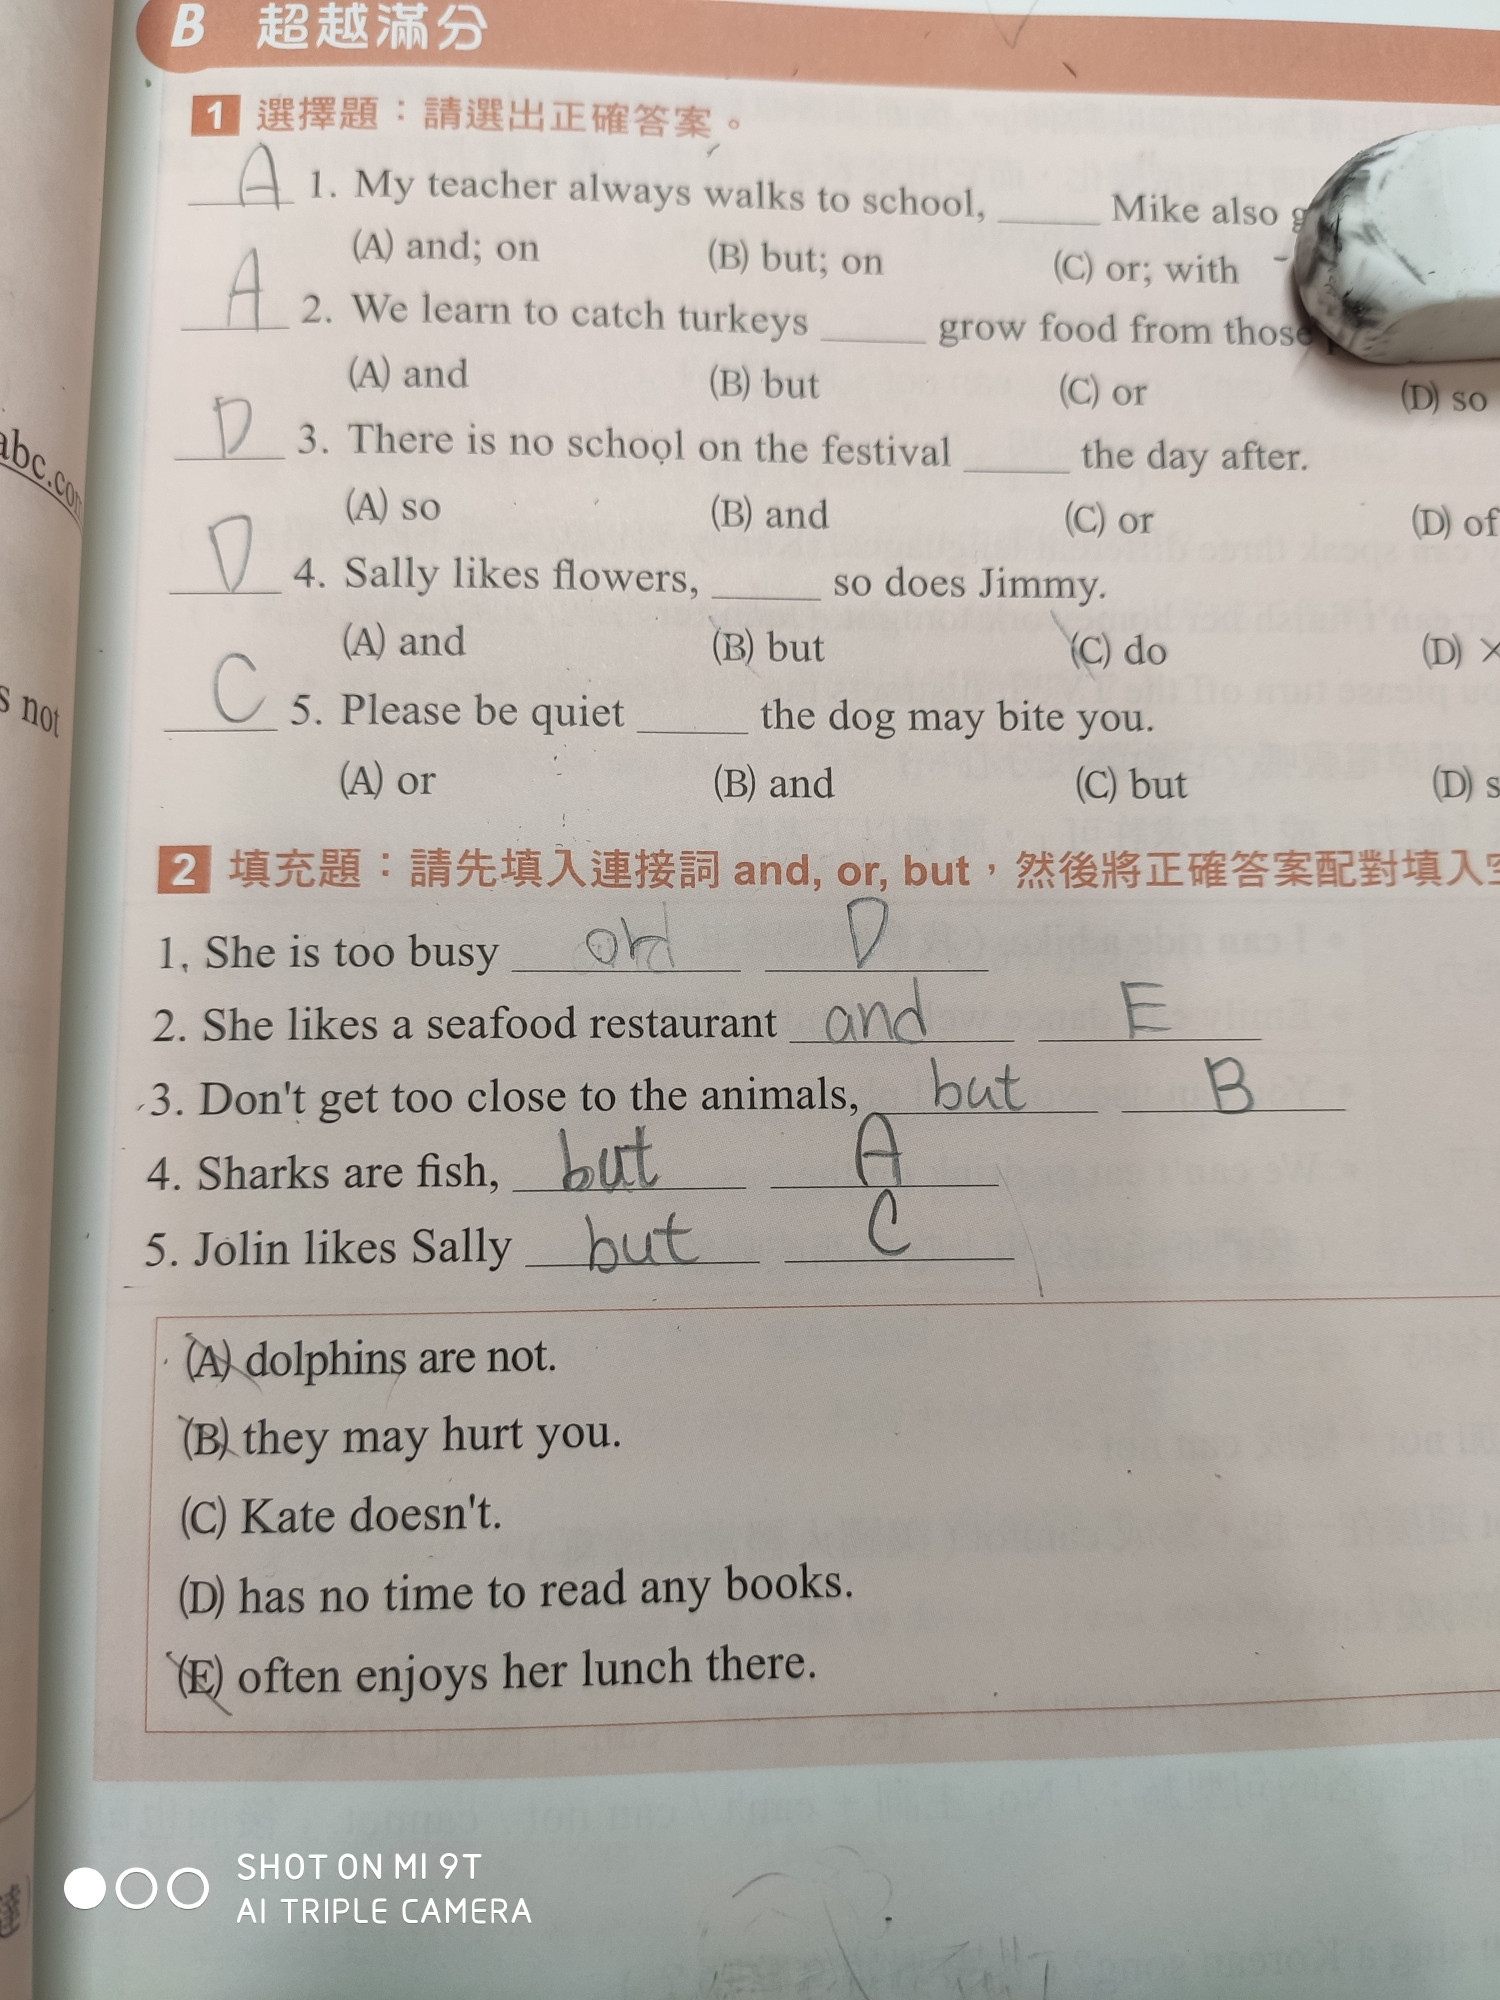 B 超越滿分
1 選擇題：請選出正確答案。
A 1. My teacher always walks to school, _____ Mike also
(A) and; on (B) but; on (C) or; with
A 2. We learn to catch turkeys _____ grow food from those
(A) and (B) but (C) or (D) so
D 3. There is no school on the festival _____ the day after.
(A) so (B) and (C) or (D) of
D 4. Sally likes flowers, _____ so does Jimmy.
(A) and (B) but (C) do (D) ×
C 5. Please be quiet _____ the dog may bite you.
(A) or (B) and (C) but (D)
2 填充題：請先填入連接詞 and, or, but，然後將正確答案配對填入
1. She is too busy D
2. She likes a seafood restaurant and E
3. Don't get too close to the animals, but B
4. Sharks are fish, but A
5. Jolin likes Sally but C
(A) dolphins are not.
(B) they may hurt you.
(C) Kate doesn't.
(D) has no time to read any books.
(E) often enjoys her lunch there.
not
SHOT ON MI 9T
AI TRIPLE CAMERA